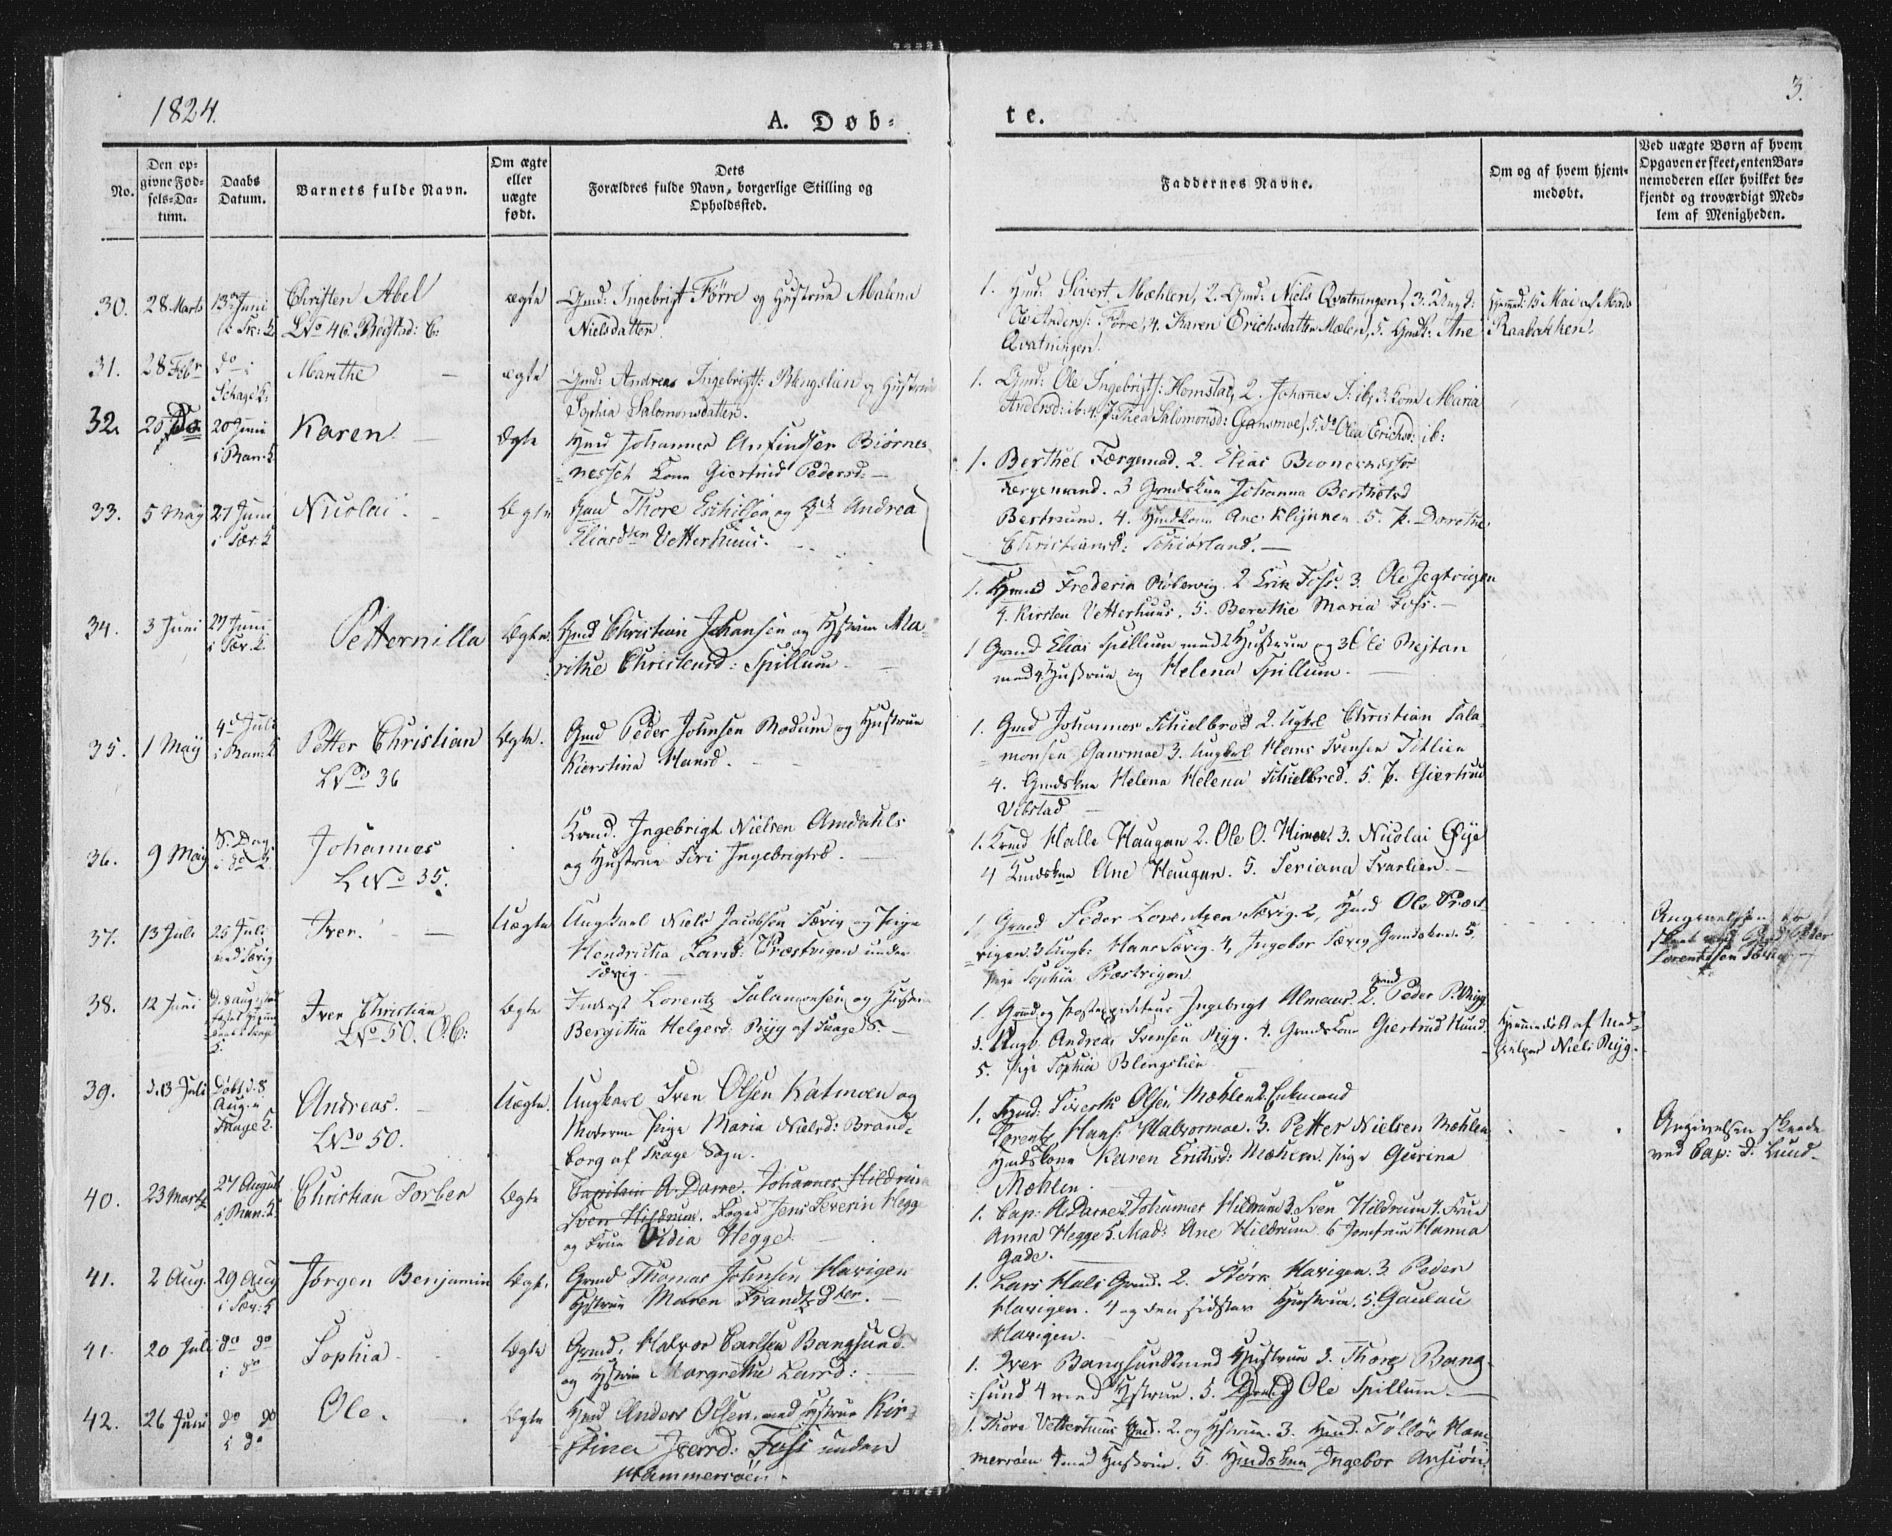 1824.
A. Døb-
te.
3.
No.
Den op-
givne Fød-
sels-Da-
tum.
Daabs
Datum.
Barnets fulde Navn.
Om ægte
eller
uægte
født.
Dets
Forældres fulde Navn, borgerlige Stilling og
Opholdssted.
Faddernes Navne.
Om og af hvem hjem-
medøbt.
Ved uægte Børn af hvem
Opgaven er skeet, enten Bar-
nemoderen eller hvilket be-
kjendt og troværdigt Med-
lem af Menigheden.
30. 28 Marts 13de Juni Christen Abel ægte Gmd: Ingebrigt Förre og Hustrue Malena
LNo 46.
Nielsdatter.
1. Hmd: Sivert Mæhlen, 2. Gmd: Niels Qvatningen, 3.
Ole Anders: Förre, 4. Karen Erichsdatter Mælen, 5. Ane
Qvatningen.
15 Mai af Mads
Raabakken.
31. 28 Febr do Marithe ægte Gmd: Andreas Ingebrigts: og Hustrue
Sophia Salomonsdatter.
1. Gmd: Ole Ingebrigts: Homstad, 2. Johannes ib, 3. Kone Maria
Andersd: ib: 4. Salomonsd: Gansmoe, 5. Olea Erichsd: ib:
32. 20 Juni
i Ran: K Karen. Ægte Hmd Johannes Anfindsen Biørnes-
nesset Kone Giertrud Pedersd: —
1. Berthel Færgemad. 2. Elias
Færgemand. 3 Gmdskne Johanna Bertheld
4. Hmdkone Ane Klijnnen. 5. P. Dorethe
Christiansd:
33. 5 Maÿ 27 Juni
i Sær. K Nicolai. Ægte Hmd Thore Eskilsen og Andrea
Eliasdten Vetterhuus.
1. Hmd Frederic 2 Erik Foss. 3. Ole Jegtvigen
4. Kirsten Vetterhuus. 5. Berethe Maria Foss. —
34. 3 Juni 27 Juni
i Sær. K. Petternilla Ægte Hmd Christian Johansen og Hustrue Ma-
rithe Christensd: Spillum. —
1 Gmd Elias Spillum med 2 Hustrue og 3 Ole
med 4 Hustrue og Helena Spillum. —
35. 1 Maÿ 4de Juli
i Ran: K Petter Christian Ægte. Gmd Peder Johnsen Modum og Hustrue
LNo 36
Kierstina Hansd.
1. Gmd Johannes Schielbred 2. Ugkl Christian Sala-
monsen Gansmoe 3. Ungkal Hans Svensen
4. Gmdskne Helena Helena Schielbred. 5. P. Giertrud
Vibstad —
36. 9 Maÿ S. Dag
i do K. Johannes
LNo 35. Gmd. Ingebrigt Nielsen Amdahls
og Hustrue Siri Ingebrigtsd.
1. Gmd Halle Haugan 2. Ole O. 3. Nicolai Øÿe
4 Ane Haugan. 5. Seriana Svarlien. —
37. 13 Juli 25 Juli
ved Særvig Iver. — Uægte Ungkarl Niels Jacobsen Særvig og Pige
Hendrikia Larsd: Præstvigen under
Særvig.
1, Gmd Peder Lorentzen Særvig. 2, Hmd Ole Præst-
vigen. 3 Ungk: Hans Særvig. 4, Ingebor Særvig Gmdskne. 5,
Pige Sophia Præstvigen
Angivelsen er
skeet ved Gmd Peder
Lorentzen Særvig
38. 12 Juni Iver Christian
LNo 50. Ægte Inderst Lorentz Salamonsen og Hustrue
Bergithe Helgesd: Rÿg af Skage S. —
1. Gmd og Postexpediteur Ingebrigt 2. Gmd Peder P. Rÿg
3. Ungk Andreas Svensen Rÿg. 4. Gmdskone Giertrud Hund
5. Pige Sophia
Hjemmedøbt af Med-
hielper Niels Rÿg.
39. d. 13 Juli Døbt d. 8
Aug. i
Skage K. Andreas.
LNo 50. Uægte. Ungkarl Sven Olsen Katmoen og
Moderen Pige Maria Nielsd: Brand-
borg af Skage Sogn.
1. Gmd: Siverth Olsen Mæhlen 2. Enkemand
Lorentz Hans: Halvormoe. 3. Petter Nielsen Mæhlen
Hmdskone Karen Erichsd: Mæhlen. Pige Gurina
Mæhlen.
Angivelsen skeede
ved Cap: D. Lund.
40. 23 Marts 27 August
i Ran: K. Christian Forber Ægte Capitain A. Darre. Johannes Hildrum
Sven Hildrum. Foged Jens Severin Hegge
og Frue Vidia Hegge.
1. Cap: A. Darre 2 Johannes Hildrum 3. Sven Hildrum 4. Frue
Anna Hegge 5. Mad: Ane Hildrum. 6 Jomfrue Hanna
Gade.
41. 2 Aug. 29 Aug
i Sær: K Jørgen Benjamin Ægte. Gmd Thomas Johnsen Havigen
Hustrue Maren Frandtzdter. —
1. Lars Hals Gmd. 2. Störk Havigen. 3 Peder
Havigen. 4 og den sidstes Hustrue. 5. Gaulau
Havigen. —
41. 20 Juli do do
i do Sophia Ægte Gmd. Halvor Carlsen Bangsund
og Hustrue Margrethe Larsd: —
1. Iver Bangsund 2 med Hustrue 3. Thore Bang-
sund 4 med Hustrue. 5. Gmd Ole Spillum. —
42. 26 Juni do do
i do Ole. Ægte Hmd Anders Olsen med Hustrue Kir-
stine Foss under
Hammerröen.
1. Thore Vetterhuus Hmd. 2. og Hustrue. 3. Hmd. Tölløv Ham
merröen 4 med Hustrue. 5. Hmdskne Ingebor